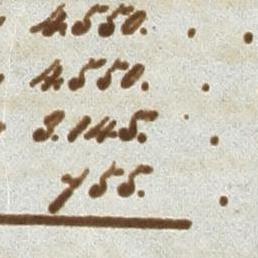 4550.
4550.
3.145.
755.